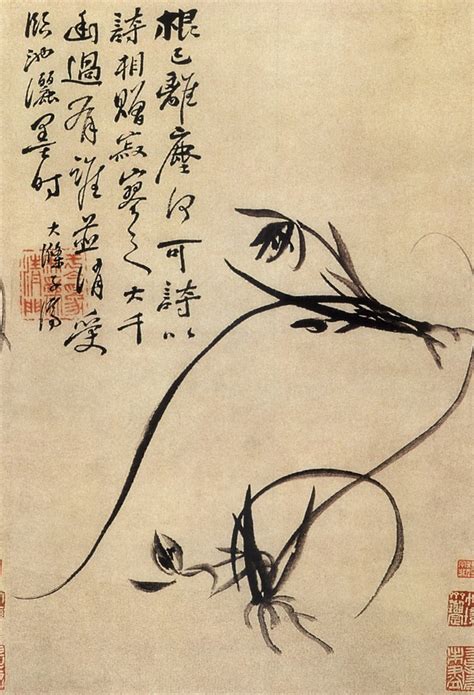 根已離塵何可詩以
詩相贈寂寥之大千
幽過有誰並消受
臨池灑墨时
大滌子濟